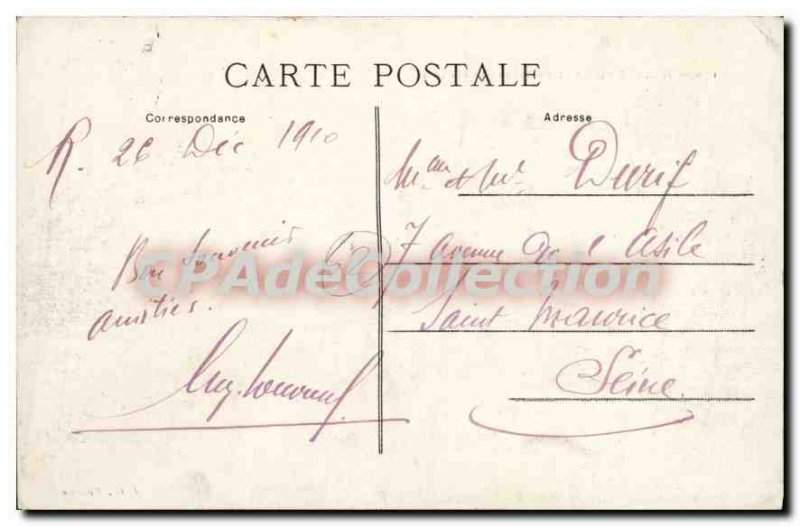 CARTE POSTALE
Correspondance
Adresse
R. 26 Déc 1910
Bon souvenir
amitiés.
Mme et Mr Durif
7 avenue de l'asile
Saint Maurice
Seine
52
CPAdeCollection